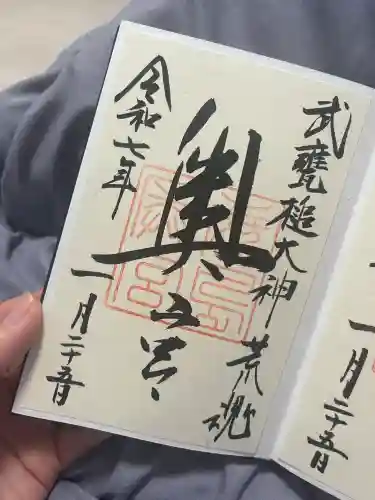 武甕槌大神荒魂
奥之宮
令和七年
一月二十五日
一月二十五日